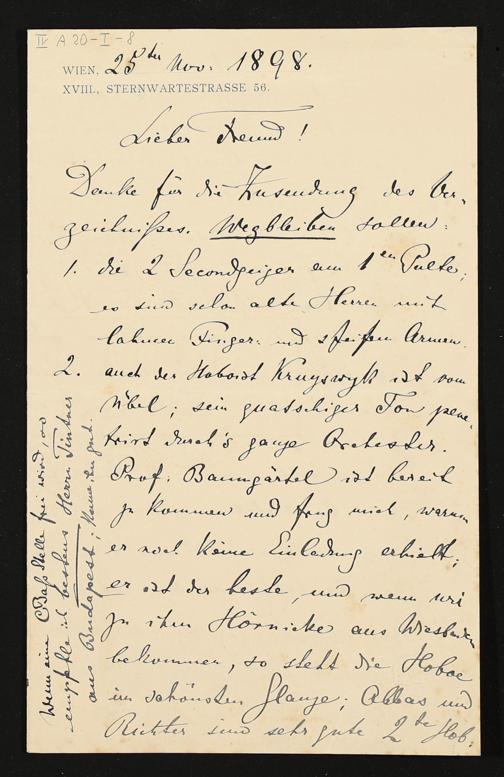 IV A 20-I-8
WIEN, 25ten Nov. 1898.
XVIII., STERNWARTESTRASSE 56.
Lieber Freund!
Danke für die Zusendung des Ver-
zeichnisses. Wegbleiben sollen:
1. die 2 Secondgeiger am 1en Pulte;
es sind schon alte Herren mit
lahmen Finger- und steifen Armen.
2. auch der Hoboist Kruyswyk ist vom
Übel; sein quatschiger Ton pene-
trirt durch's ganze Orchester.
Prof. Baumgärtel ist bereit
zu kommen und frug mich, warum
er noch keine Einladung erhielt;
er ist der beste, und wenn wir
zu ihm Hörnicke aus Wiesbaden
bekommen, so steht die Hoboe
im schönsten Glanze; Abbas und
Richter sind sehr gute 2te Hob:
Wenn eine CBaß Stelle frei wird, so
empfehle ich bestens Herrn Tintner
aus Budapest; kenne ihn gut.